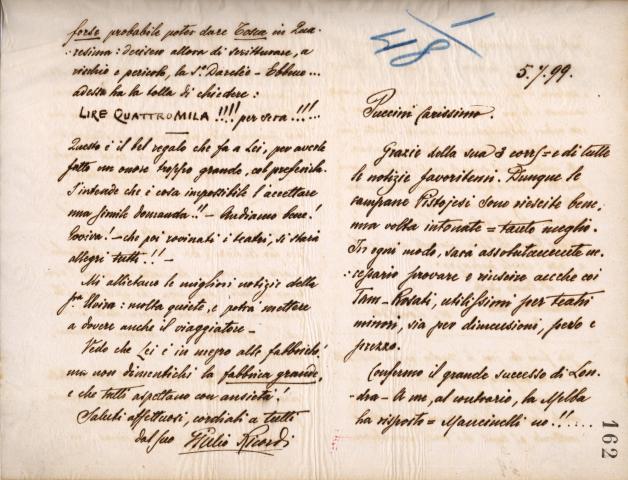 5.7.99.
Puccini Carissimo.
Grazie della sua 3 corr= e di tutte
le notizie favoritemi. Dunque le
campane Pistojesi sono riescite bene,
una volta intonate = tanto meglio.
In ogni modo, sarà assolutamente ne-
:cessario provare e riuscire anche coi
Tam-Rosati, utilissimi per teatri
minori, sia per dimensioni, peso e
prezzo.
Confermo il grande successo di Lon-
dra - A me, al contrario, la Melba
ha risposto = Mancinelli no!!.....
162
forse probabile poter dare Tosca in Qua-
:resima: decisero allora di scritturare, a
rischio e pericolo, la Sra Darclée - Ebbene...
adesso ha la bolla di chiedere:
LIRE QUATTROMILA !!!! per sera !!!...
Questo è il bel regalo che fa a Lei, per averle
fatto un onore troppo grande, col preferirla.
S'intende che è cosa impossibile l'accettare
una simile domanda!!- Andiamo bene!
Evviva! - che poi rovinati i teatri, si starà
allegri tutti!!-
Mi allietano le migliori notizie della
Sra Elvira: molta quiete, e potrà mettere
a dovere anche il viaggiatore -
Vedo che Lei è in mezzo alle fabbriche,
ma non dimentichi la fabbrica grande,
e che tutti aspettano con ansietà!
Saluti affettuosi, cordiali a tutti
dal suo Giulio Ricordi